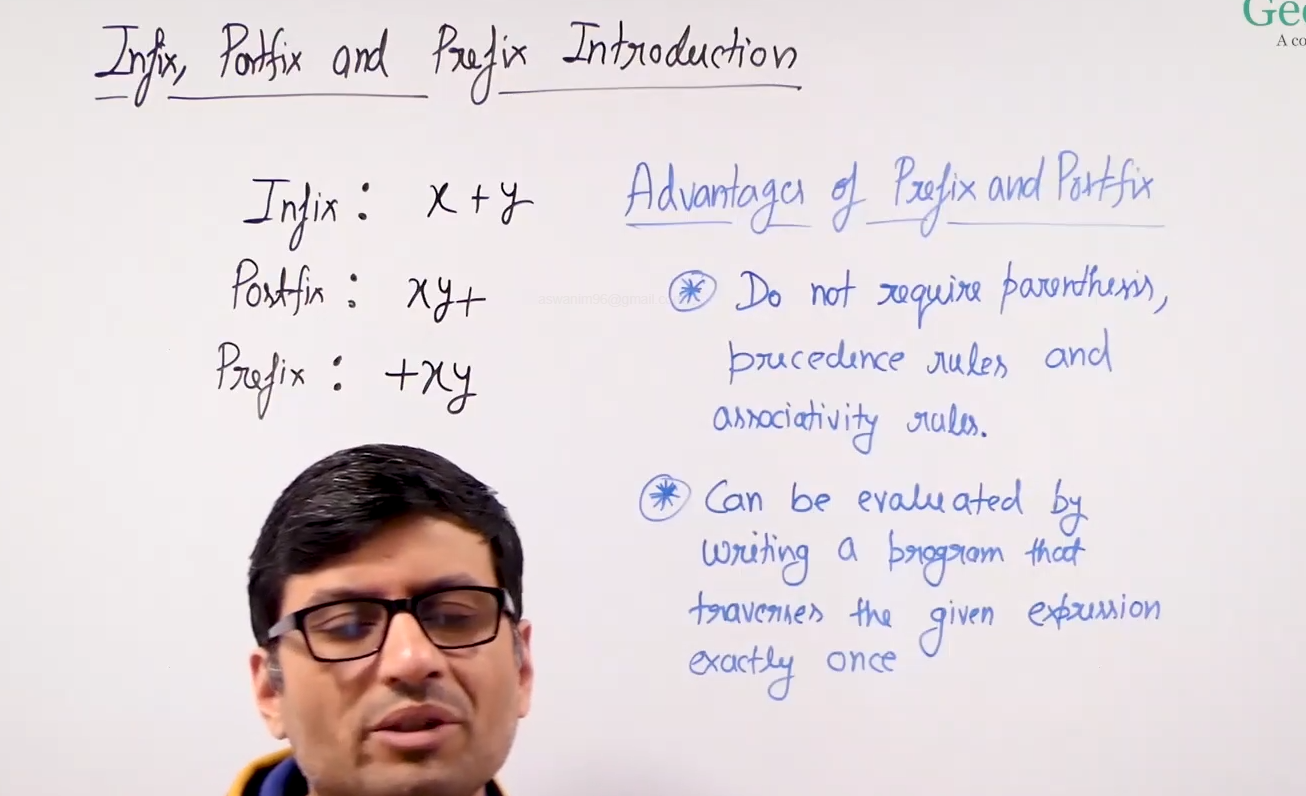 Infix, Postfix and Prefix Introduction
Gee
A co
Infix : x + y
Postfix : xy+
Prefix : +xy
Advantages of Prefix and Postfix
* Do not require parenthesis,
precedence rules and
associativity rules.
* Can be evaluated by
writing a program that
traverses the given expression
exactly once